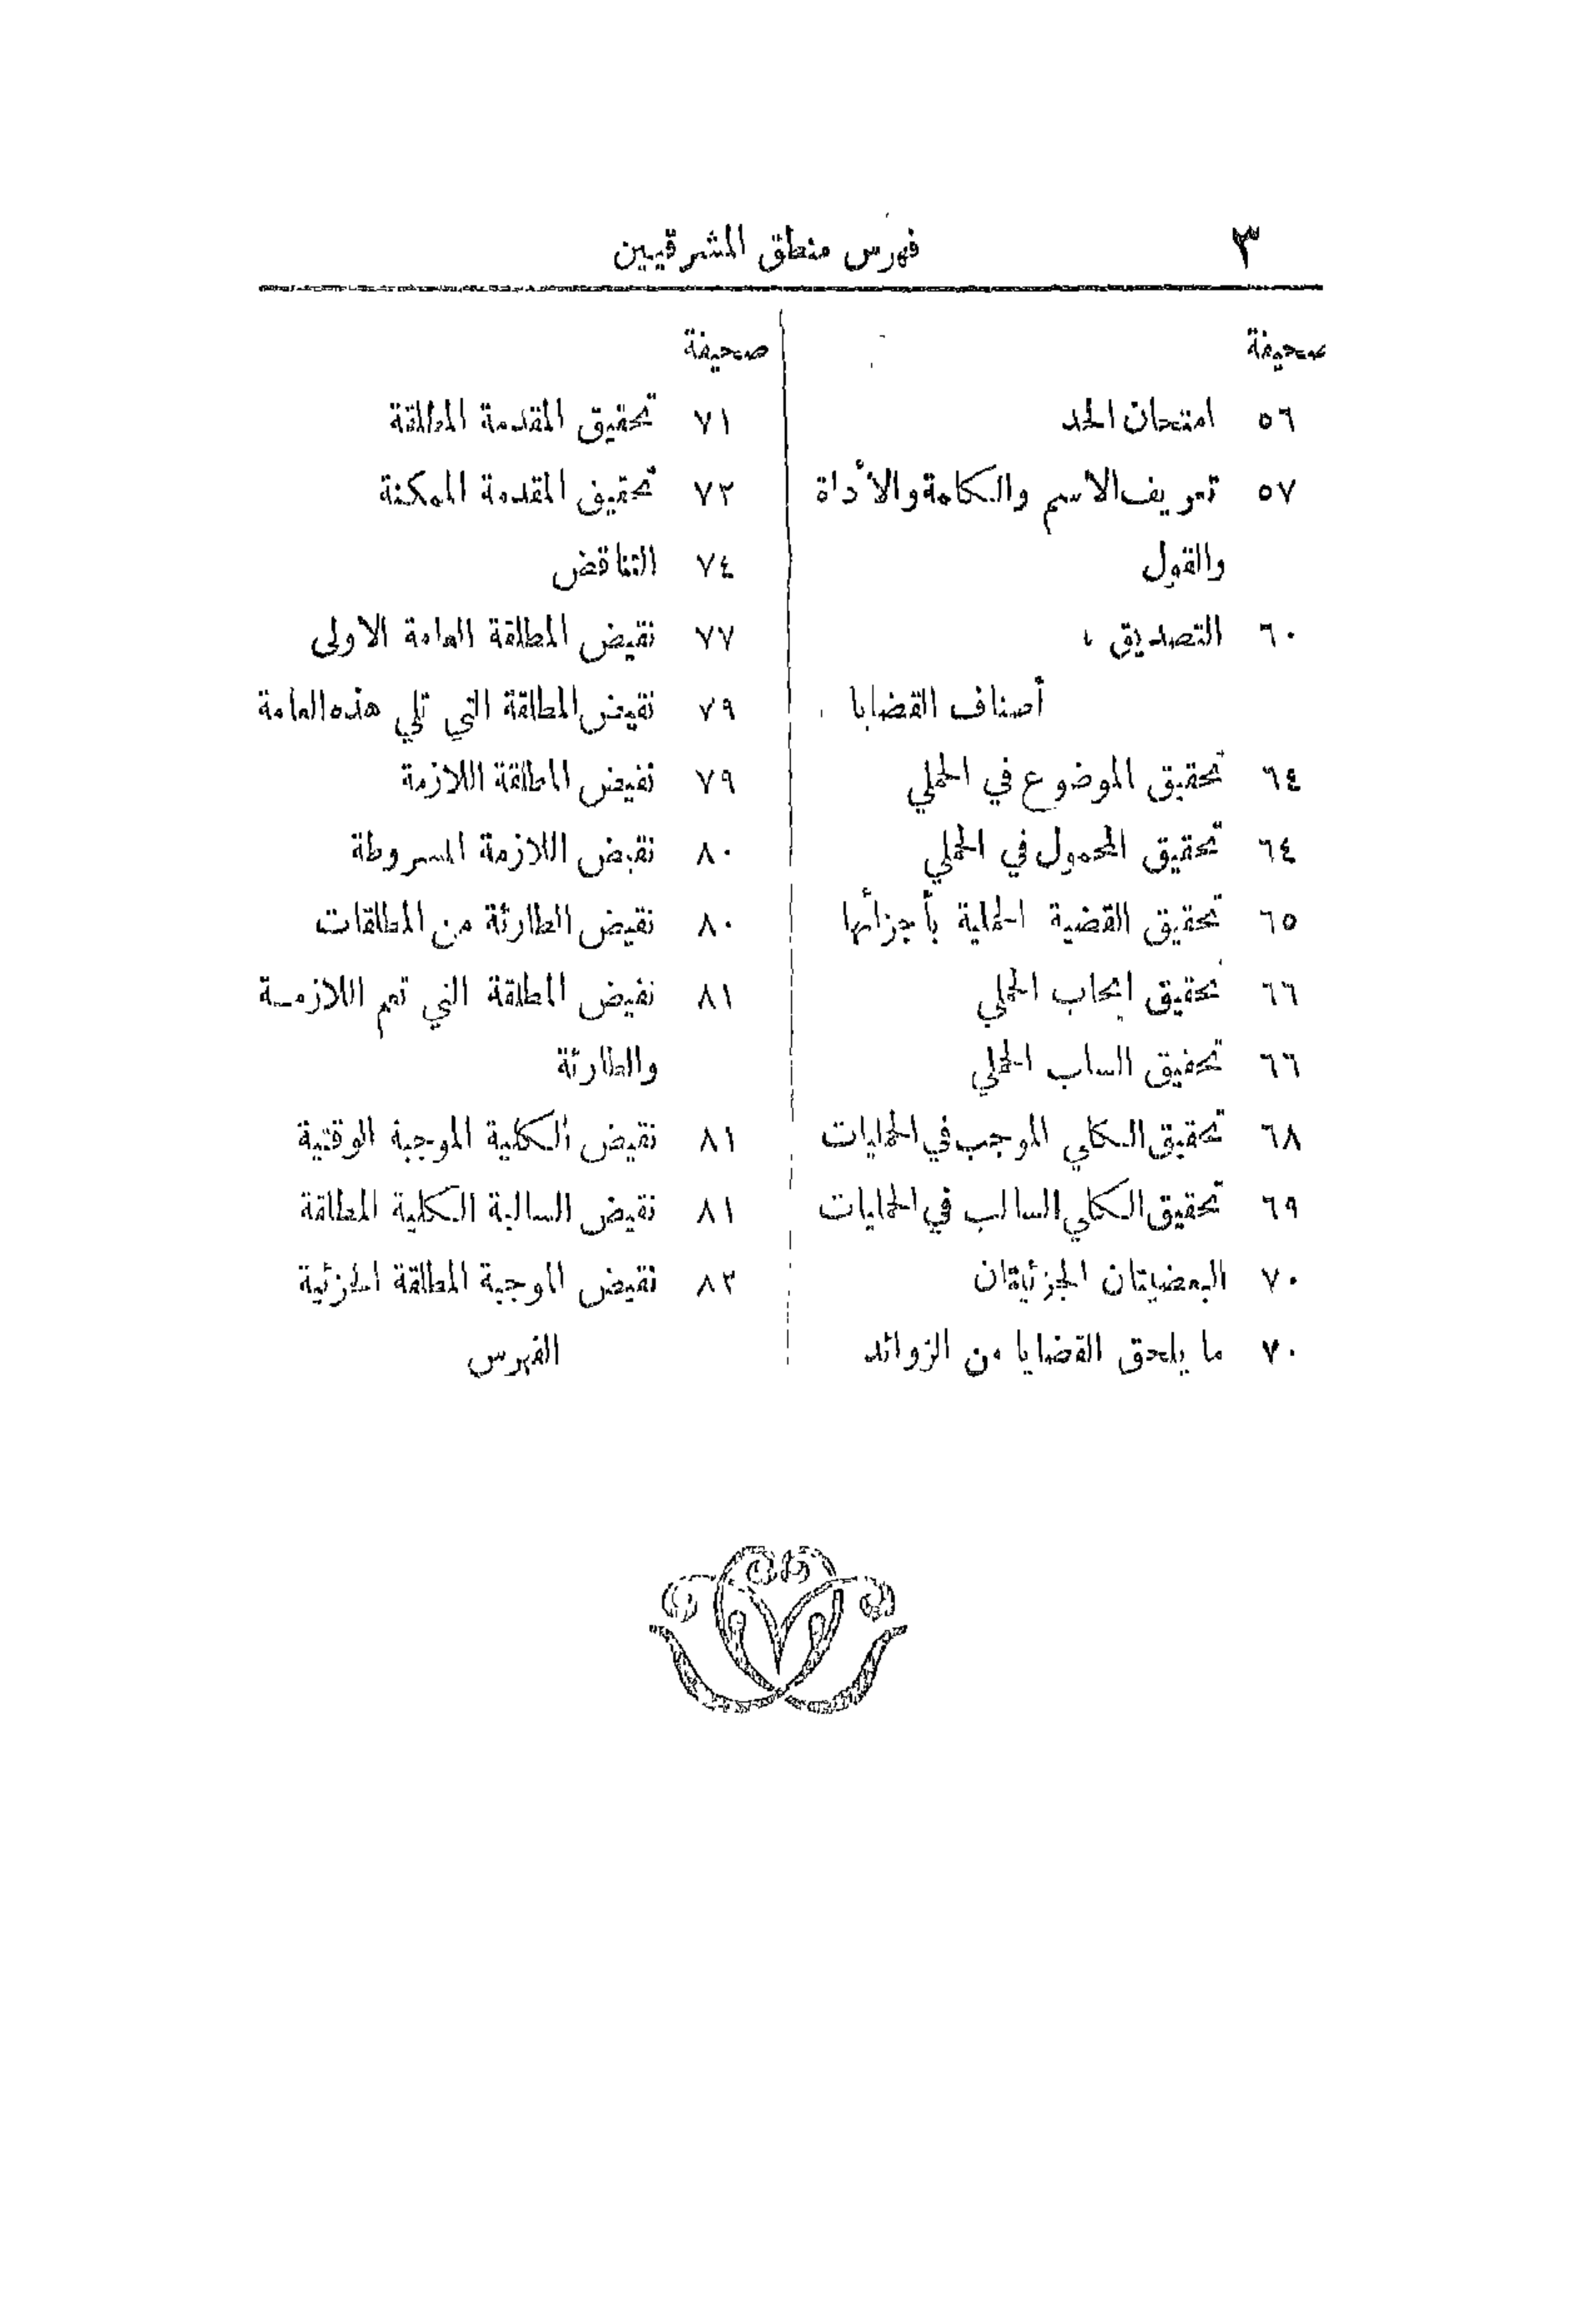 ٣ فهرس منطق المشرقيين
صحيفة
٥٦ امتحان الحد
٥٧ تعريف الاسم والكلمة والأداة
والقول
٦٠ التصديق
أصناف القضايا
٦٤ تحقيق الموضوع في الحملي
٦٤ تحقيق المحمول في الحملي
٦٥ تحقيق القضية الحملية بأجزائها
٦٦ تحقيق ايجاب الحملي
٦٦ تحقيق السلب الحملي
٦٨ تحقيق الكلي الموجب في الحمليات
٦٩ تحقيق الكلي السالب في الحمليات
٧٠ البعضيتان الجزئيتان
٧٠ ما يلحق القضايا من الزوائد
صحيفة
٧١ تحقيق المقدمة المطلقة
٧٢ تحقيق المقدمة الممكنة
٧٤ التناقض
٧٧ نقيض المطلقة العامة الاولى
٧٩ نقيض المطلقة التي تلي هذه العامة
٧٩ نقيض المطلقة اللازمة
٨٠ نقيض اللازمة المشروطة
٨٠ نقيض الطارئة من المطلقات
٨١ نقيض المطلقة التي تعم اللازمة
والطارئة
٨١ نقيض الكلية الموجبة الوقتية
٨١ نقيض السالبة الكلية المطلقة
٨٢ نقيض الموجبة المطلقة الجزئية
الفهرس